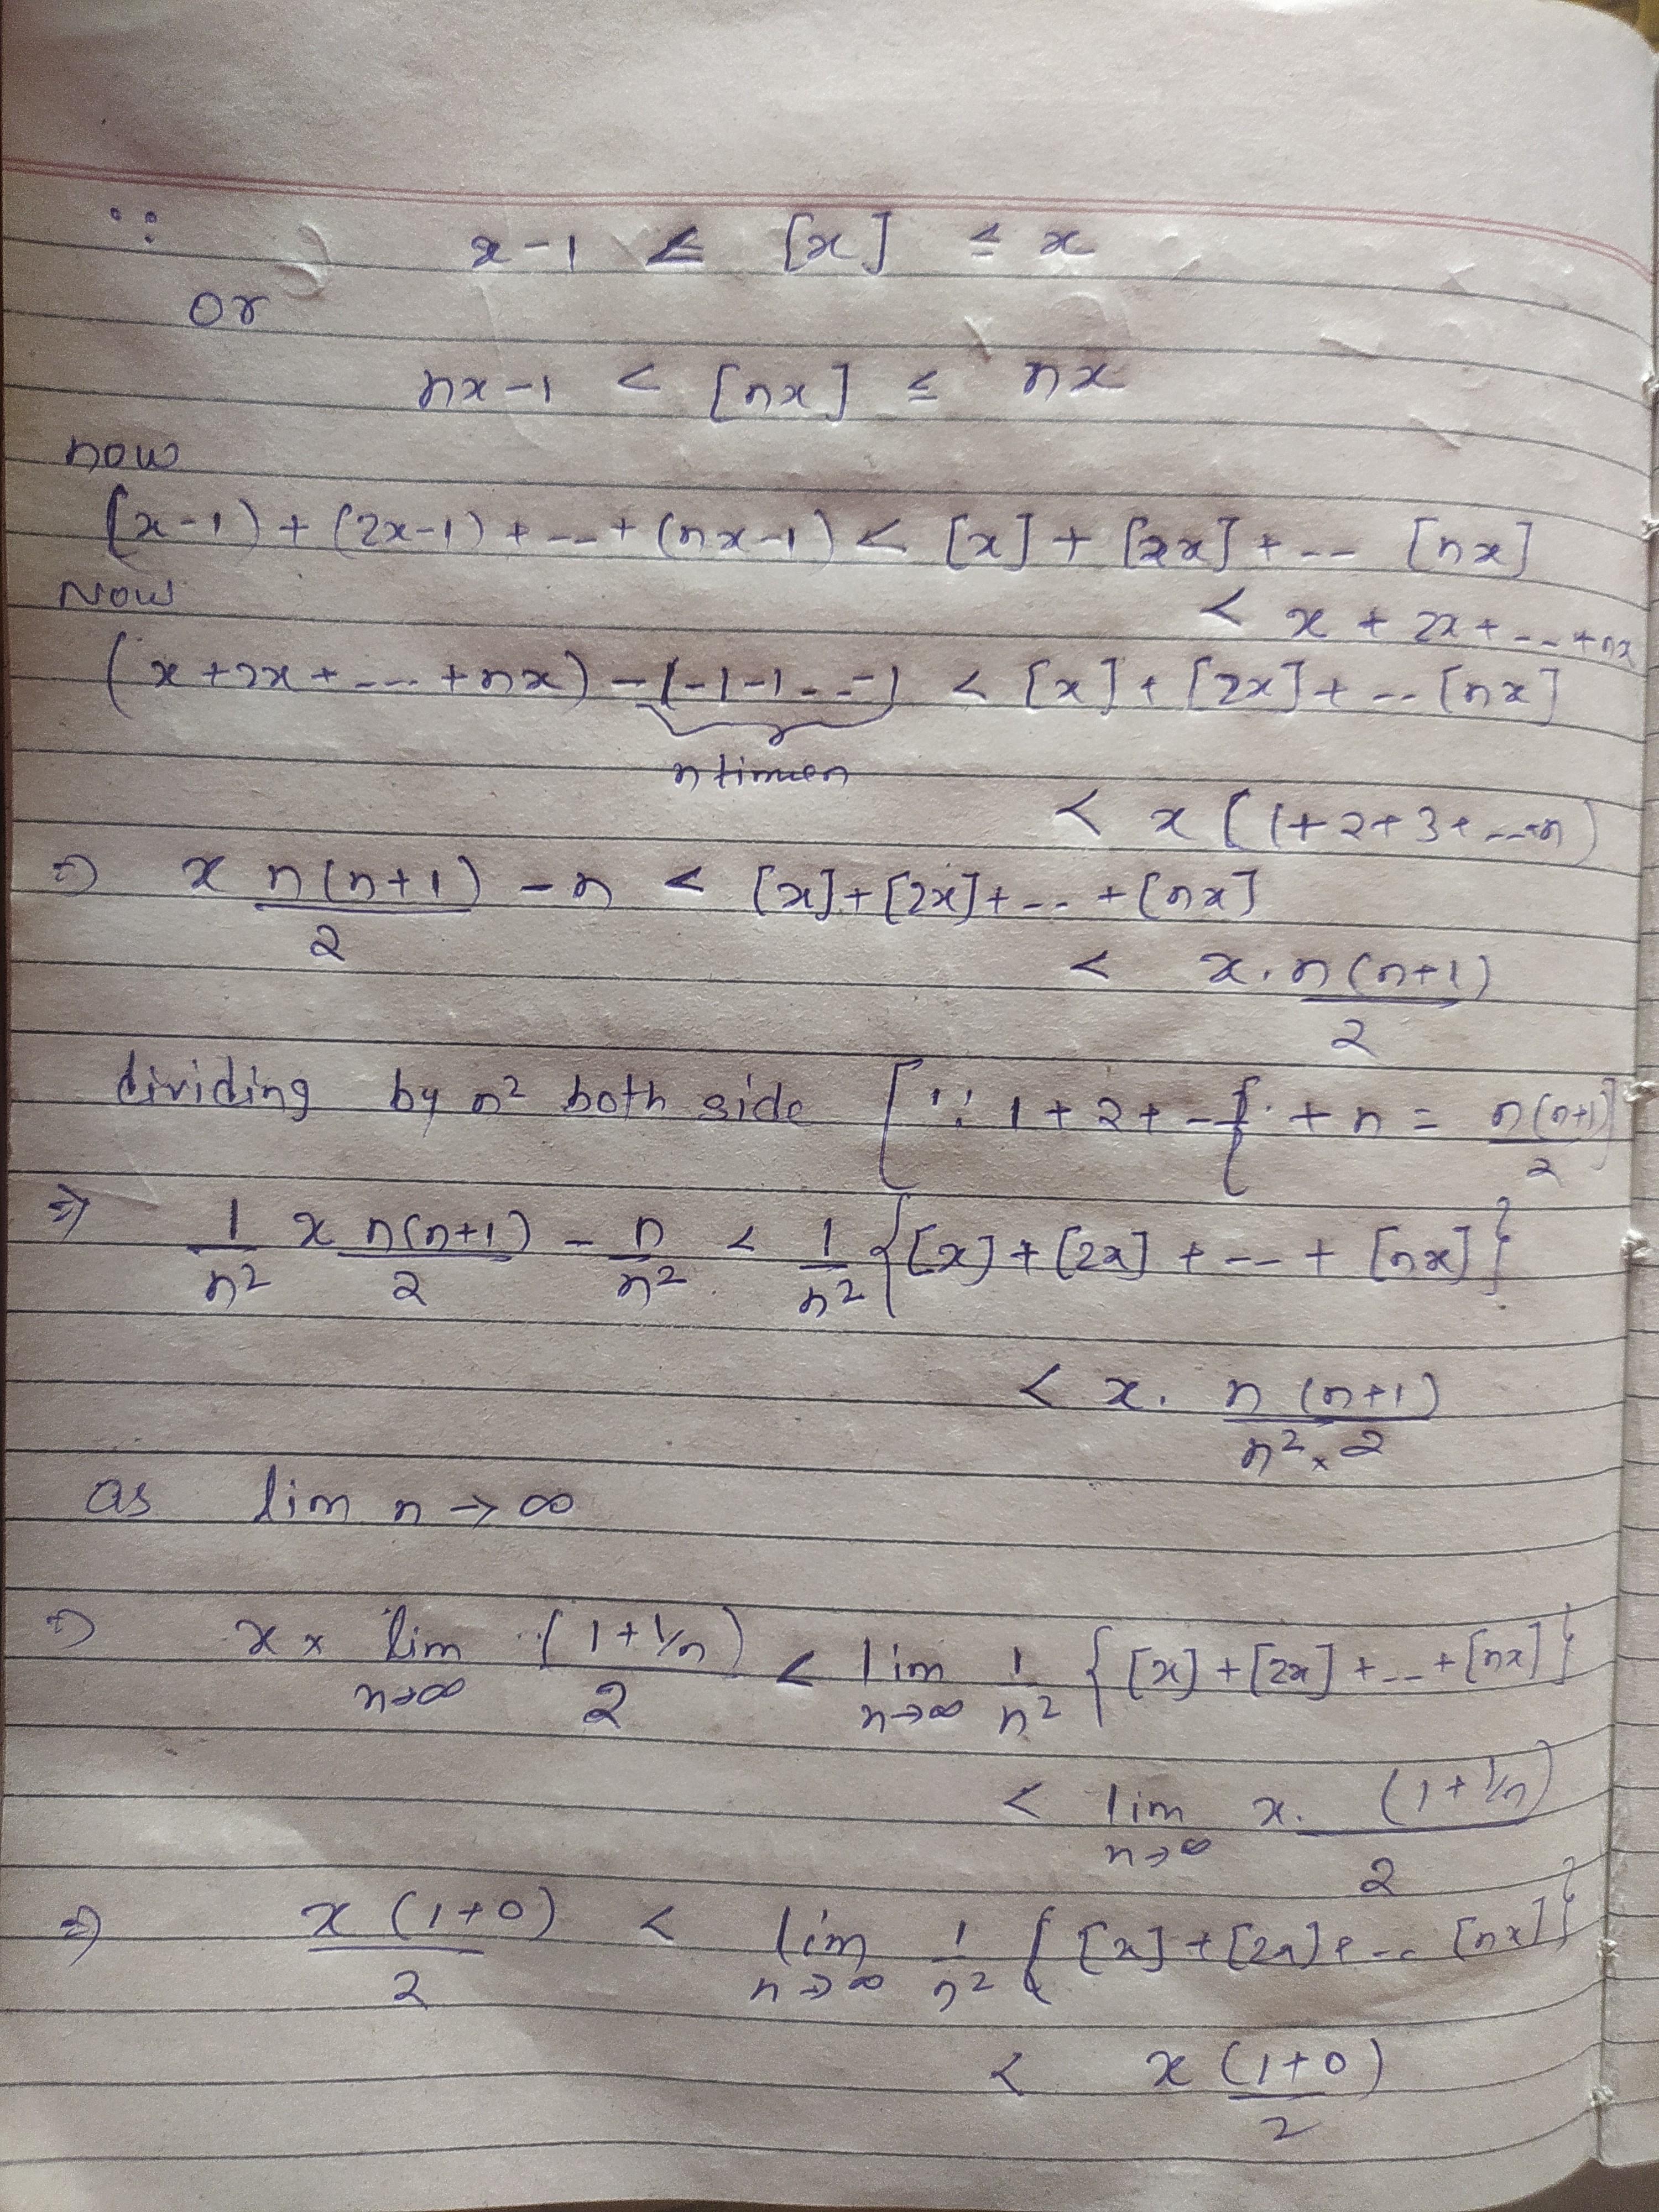 ∵ x-1 < [x] ≤ x
or
nx-1 < [nx] ≤ nx
now
(x-1)+(2x-1)+--+(nx-1) < [x]+[2x]+-- [nx]
Now < x + 2x+--+nx
(x+2x+---+nx) -(-1-1--) < [x]+[2x]+--[nx]
n times
< x(1+2+3+--+n)
⇒ x n(n+1)/2 - n < [x]+[2x]+--+[nx]
< x. n(n+1)/2
dividing by n² both side [∵ 1+2+--+n = n(n+1)/2]
⇒ 1/n² x n(n+1)/2 - n/n² < 1/n² {[x]+[2x]+--+[nx]}
< x. n(n+1)/n²×2
as lim n→∞
⇒ x × lim n→∞ (1+1/n)/2 < lim n→∞ 1/n² {[x]+[2x]+--+[nx]}
< lim n→∞ x. (1+1/n)/2
⇒ x(1+0)/2 < lim n→∞ 1/n² {[x]+[2x]+-- [nx]}
< x(1+0)/2